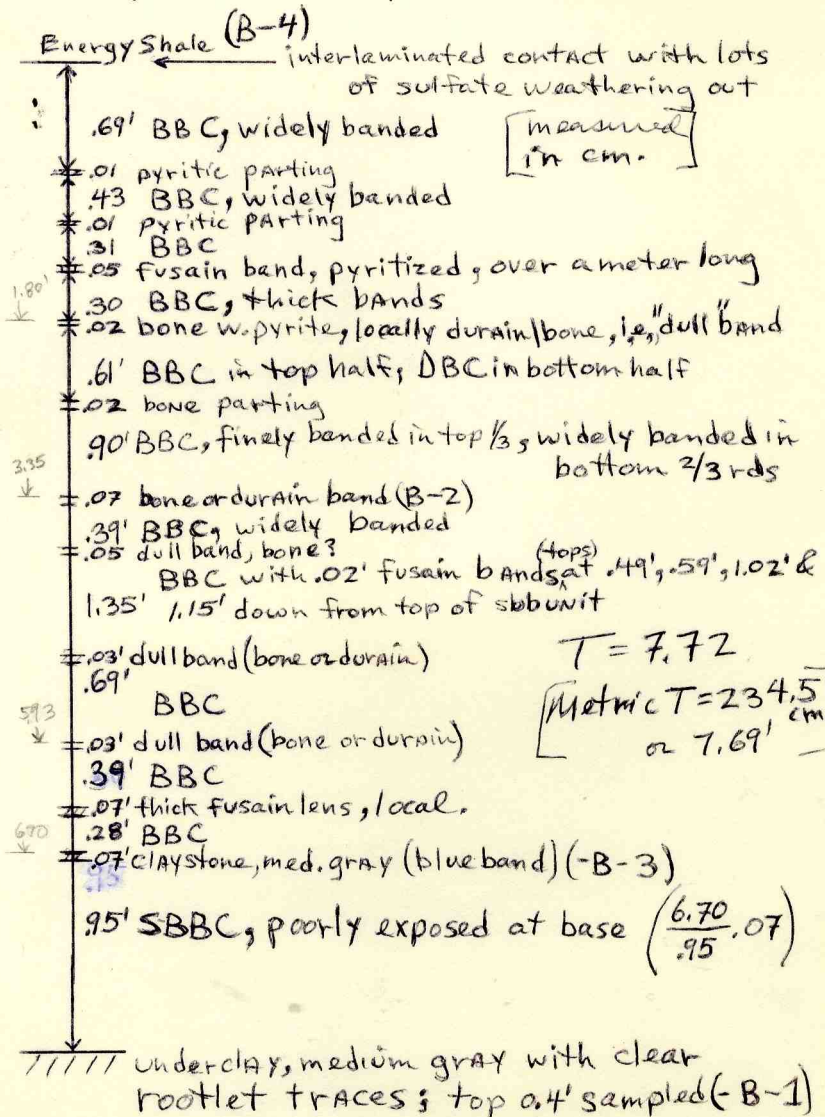 Energy Shale (B-4)
interlaminated contact with lots
of sulfate weathering out
.69' BBC, widely banded
[measured
in cm.]
.01 pyritic parting
.43 BBC, widely banded
.01 pyritic parting
.31 BBC
.05 fusain band, pyritized, over a meter long
1.80'
.30 BBC, thick bands
.02 bone w. pyrite, locally durain/bone, i.e., "dull" band
.61' BBC in top half; DBC in bottom half
.02 bone parting
.90' BBC, finely banded in top 1/3, widely banded in
bottom 2/3 rds
3.35
.07 bone or durain band (B-2)
.39' BBC, widely banded
.05 dull band, bone?
(tops)
BBC with .02' fusain bands at .49', .59', 1.02' &
1.35' 1.15' down from top of subunit
.03' dull band (bone or durain)
T = 7.72
.69'
BBC
[Metric T = 234.5 cm
or 7.69']
593
.03' dull band (bone or durain)
.39' BBC
.07' thick fusain lens, local.
.28' BBC
670
.07' claystone, med. gray (blue band) (-B-3)
.95
.95' SBBC, poorly exposed at base (6.70/.95 .07)
underclay, medium gray with clear
rootlet traces; top 0.4' sampled (-B-1)